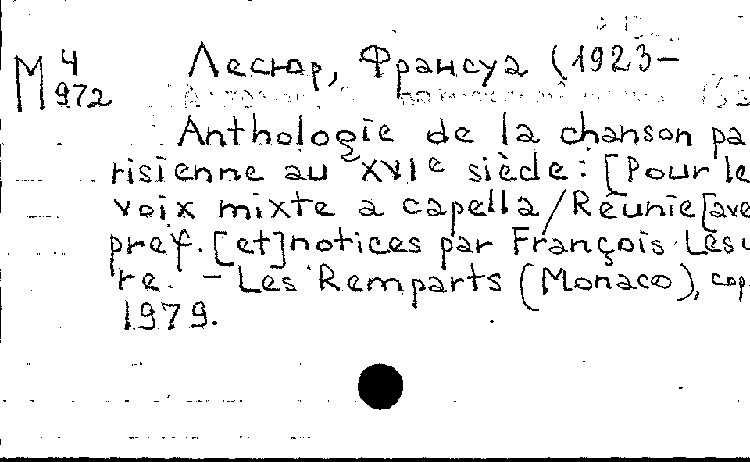 M 4 Лесюр, Франсуа (1923–
972
Anthologie de la chanson pa
risienne au XVIe siècle: [Pour le
voix mixte a capella/Réunie[ave
préf. [et]notices par François Lesu
re. – Les Remparts (Monaco), cop.
1979.